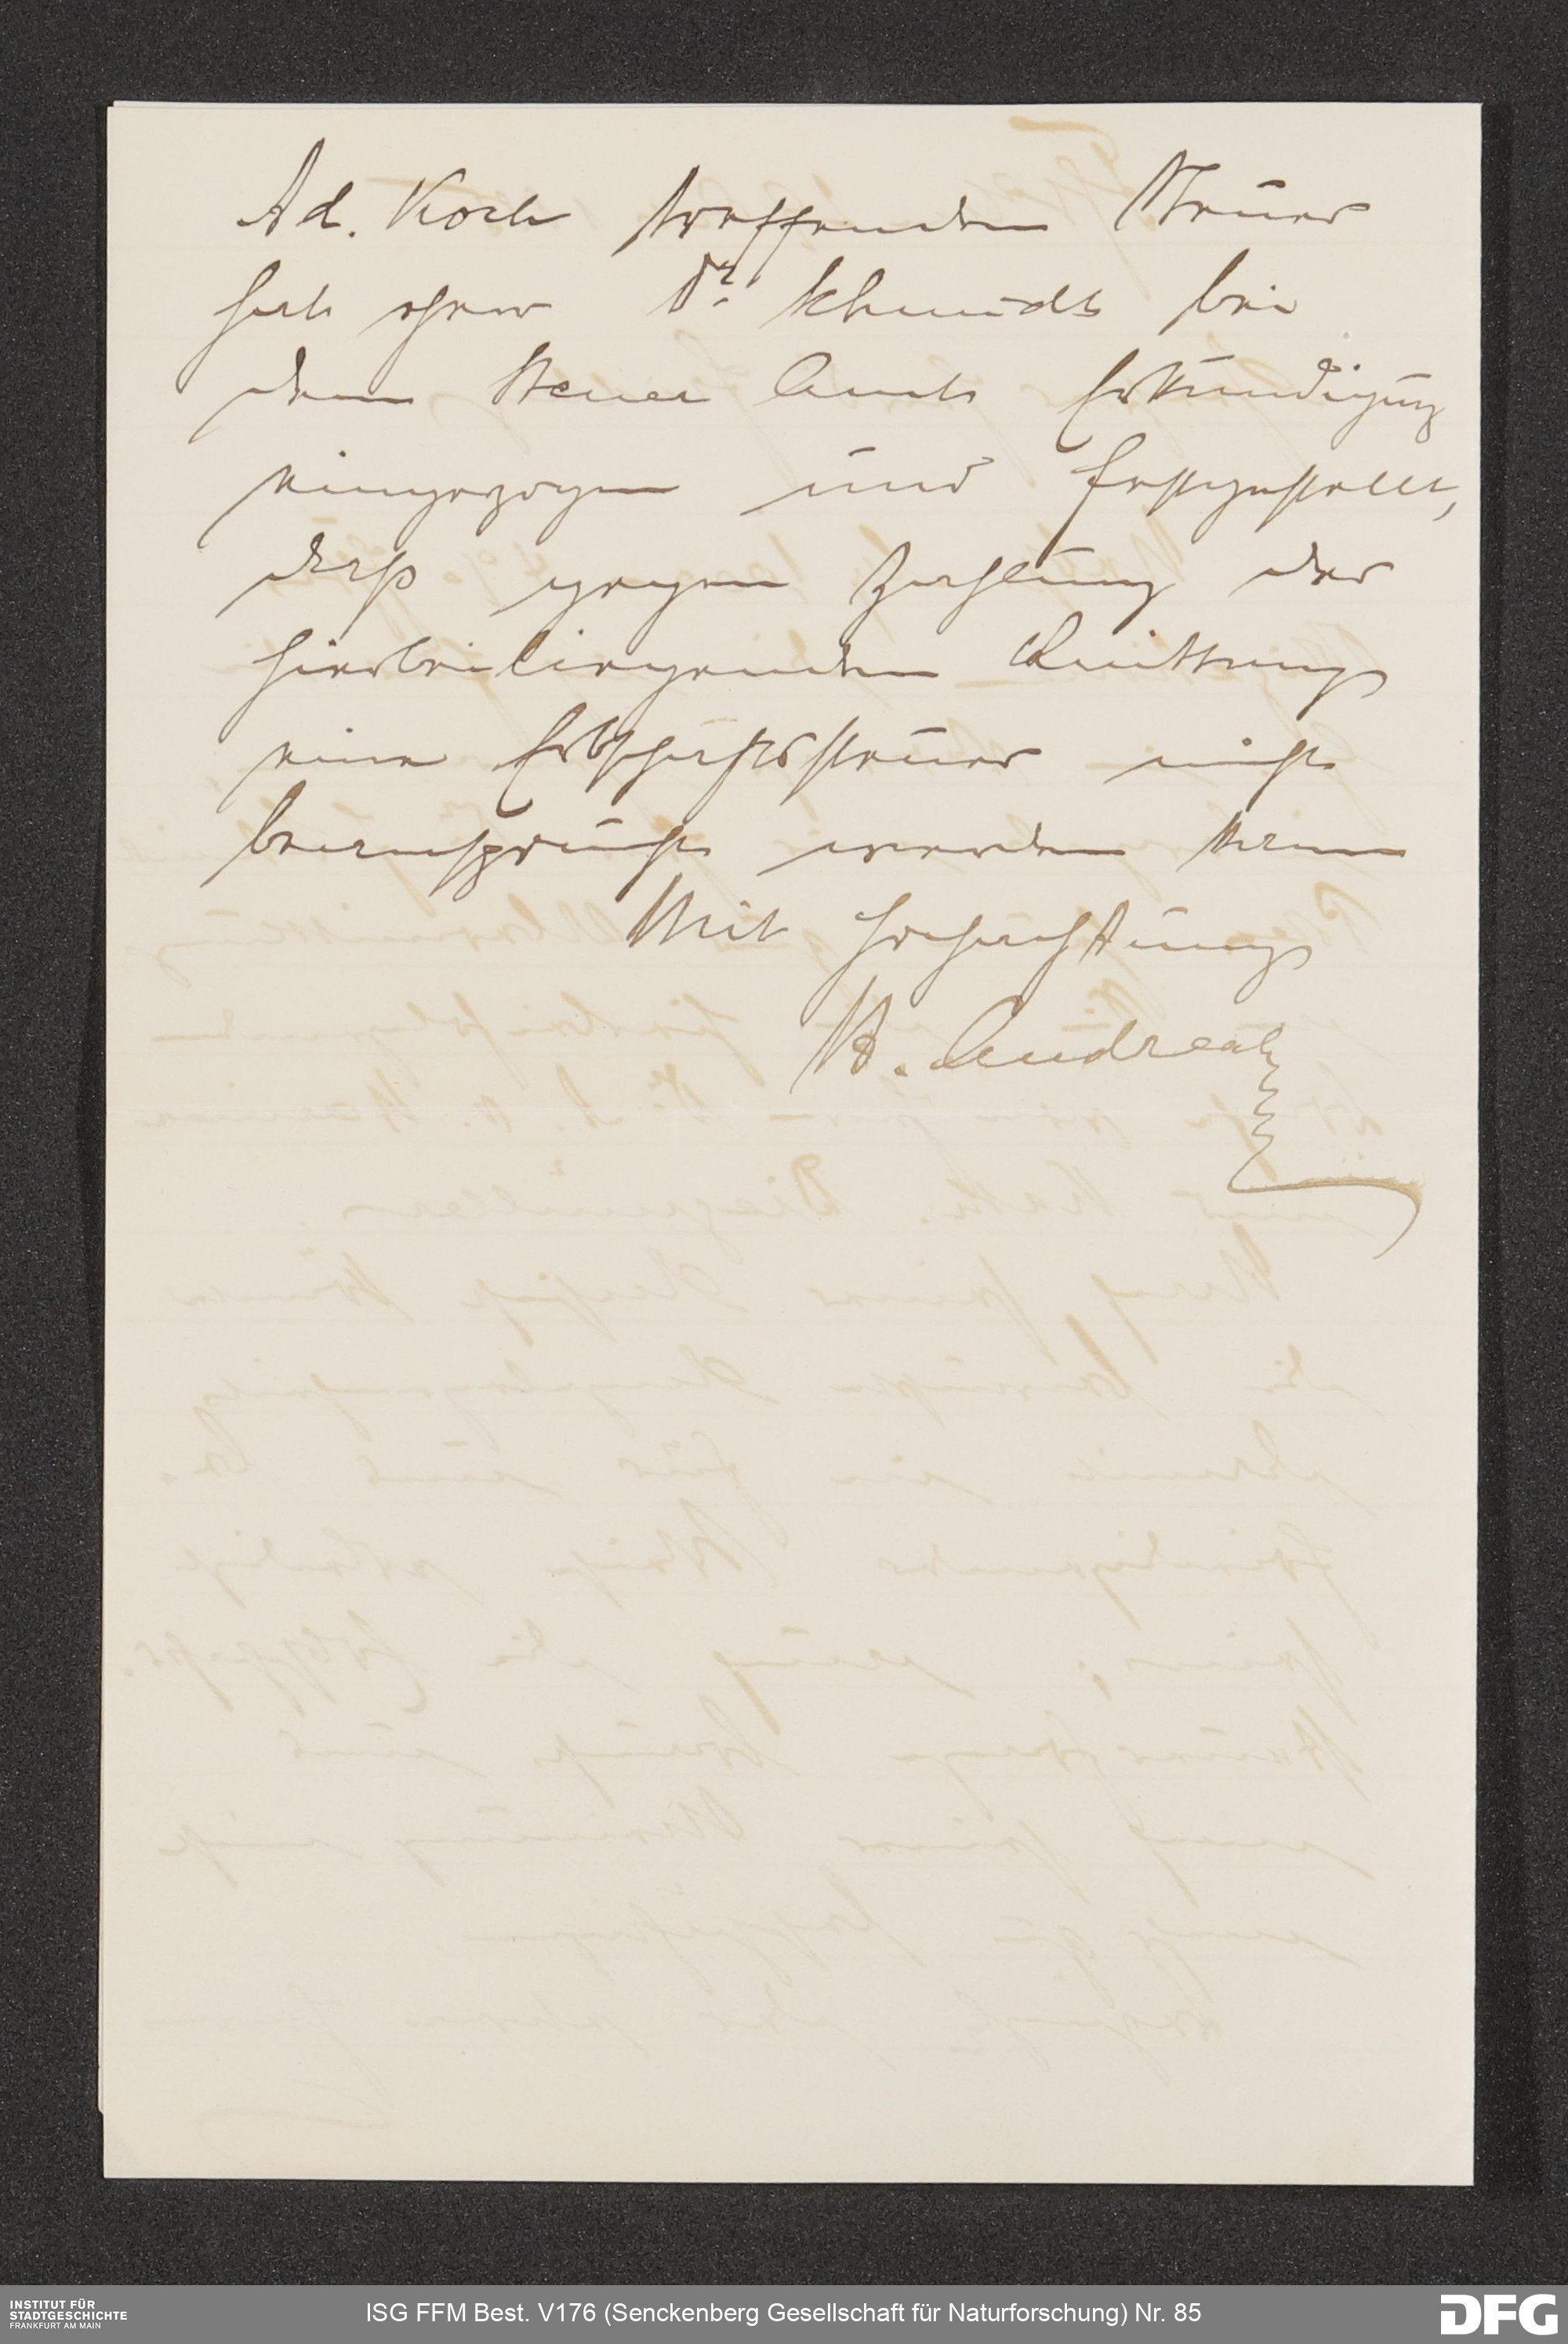 Ad. Koch treffenden Steuer
hat Herr Dr. Schmidt bei
dem Steuer Amt Erkundigung
eingezogen und festgestellt,
daß gegen Zahlung der
hierbeiliegenden Quittung
eine Erbschaftssteuer nicht
beansprucht werden kann
Mit Hochachtung
A. Andreae
INSTITUT FÜR
STADTGESCHICHTE
FRANKFURT AM MAIN
ISG FFM Best. V176 (Senckenberg Gesellschaft für Naturforschung) Nr. 85
DFG